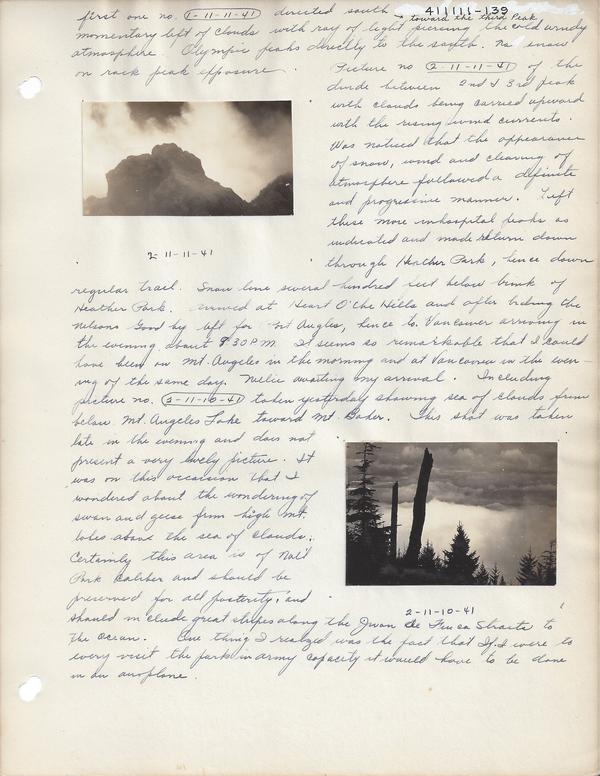 411111-139
first one no. 1-11-11-41 directed south toward the third Peak,
momentary left of clouds with ray of light piercing the cold windy
atmosphere. Olympic peaks directly to the south. no snow
on rock peak exposure.
Picture no 2-11-11-41 of the
divide between 2nd & 3rd peak
with clouds being carried upward
with the rising wind currents.
Was noticed that the appearance
of snow, wind and clearing of
atmosphere followed a definite
and progressive manner. Left
these more inhospital peaks as
indicated and made return down
through Heather Park, hence down
2-11-11-41
regular trail. Snow line several hundred feet below brink of
Heather Park. arrived at Heart O'the Hills and after biding the
Nelsons Good by left for Pt Angles, hence to Vancouver arriving in
the evening about 9 30 PM. It seems so remarkable that I could
have been on Mt. Angeles in the morning and at Vancouver in the even-
ing of the same day. Nellie awaiting my arrival. Including
picture no. 2-11-10-41 taken yesterday showing sea of clouds from
below Mt. Angeles Lake toward Mt. Baker. This shot was taken
late in the evening and does not
present a very lively picture. It
was on this occasion that I
wondered about the wondering of
swan and geese from high Mt.
lakes above the sea of clouds.
Certainly this area is of Nat'l
Park Caliber and should be
preserved for all posterity, and
2-11-10-41
should include great stripes along the Jwan de Fuca Straits to
the Ocean. One thing I realized was the fact that If I were to
every visit the park in army capacity it would have to be done
in an airoplane.